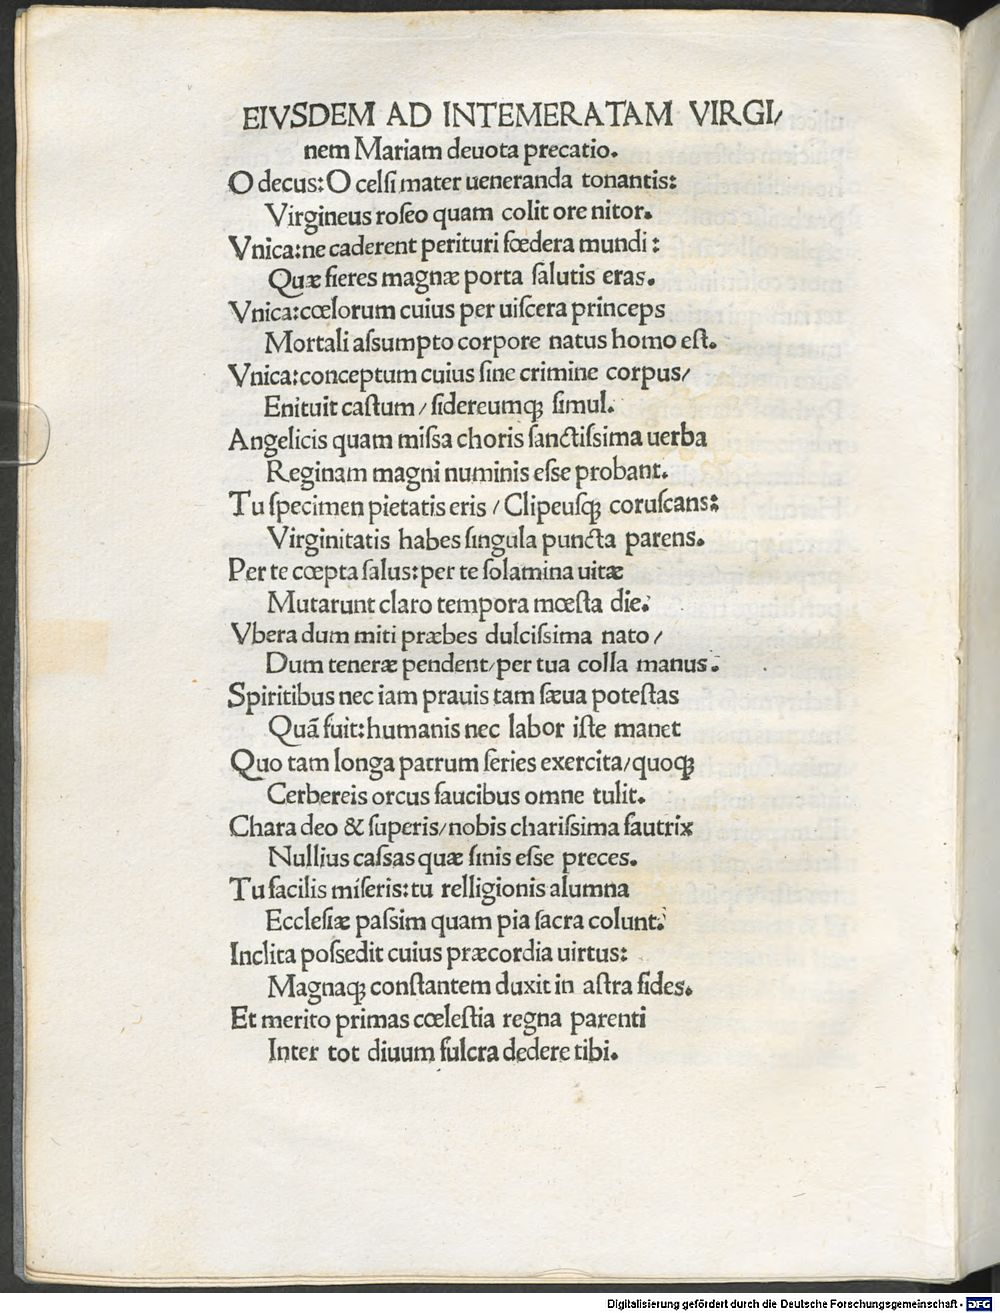 EIVSDEM AD INTEMERATAM VIRGI/
nem Mariam deuota precatio.
O decus: O celſi mater ueneranda tonantis:
Virgineus roſeo quam colit ore nitor.
Vnica: ne caderent perituri fœdera mundi:
Quæ fieres magnæ porta ſalutis eras.
Vnica: cœlorum cuius per uiſcera princeps
Mortali aſsumpto corpore natus homo eſt.
Vnica: conceptum cuius ſine crimine corpus/
Enituit caſtum/ſidereumqꝫ ſimul.
Angelicis quam miſsa choris ſanctiſsima uerba
Reginam magni numinis eſse probant.
Tu ſpecimen pietatis eris/Clipeuſqꝫ coruſcans:
Virginitatis habes ſingula puncta parens.
Per te cœpta ſalus: per te ſolamina uitæ
Mutarunt claro tempora mœſta die.
Vbera dum miti præbes dulciſsima nato/
Dum teneræ pendent/per tua colla manus.
Spiritibus nec iam prauis tam ſæua poteſtas
Quã fuit: humanis nec labor iſte manet
Quo tam longa patrum ſeries exercita/quoqꝫ
Cerbereis orcus faucibus omne tulit.
Chara deo & ſuperis/nobis chariſsima fautrix
Nullius caſsas quæ ſinis eſse preces.
Tu facilis miſeris: tu relligionis alumna
Eccleſiæ paſsim quam pia ſacra colunt.
Inclita poſsedit cuius præcordia uirtus:
Magnaqꝫ conſtantem duxit in aſtra fides.
Et merito primas cœleſtia regna parenti
Inter tot diuum fulcra dedere tibi.
Digitalisierung gefördert durch die Deutsche Forschungsgemeinschaft - DFG